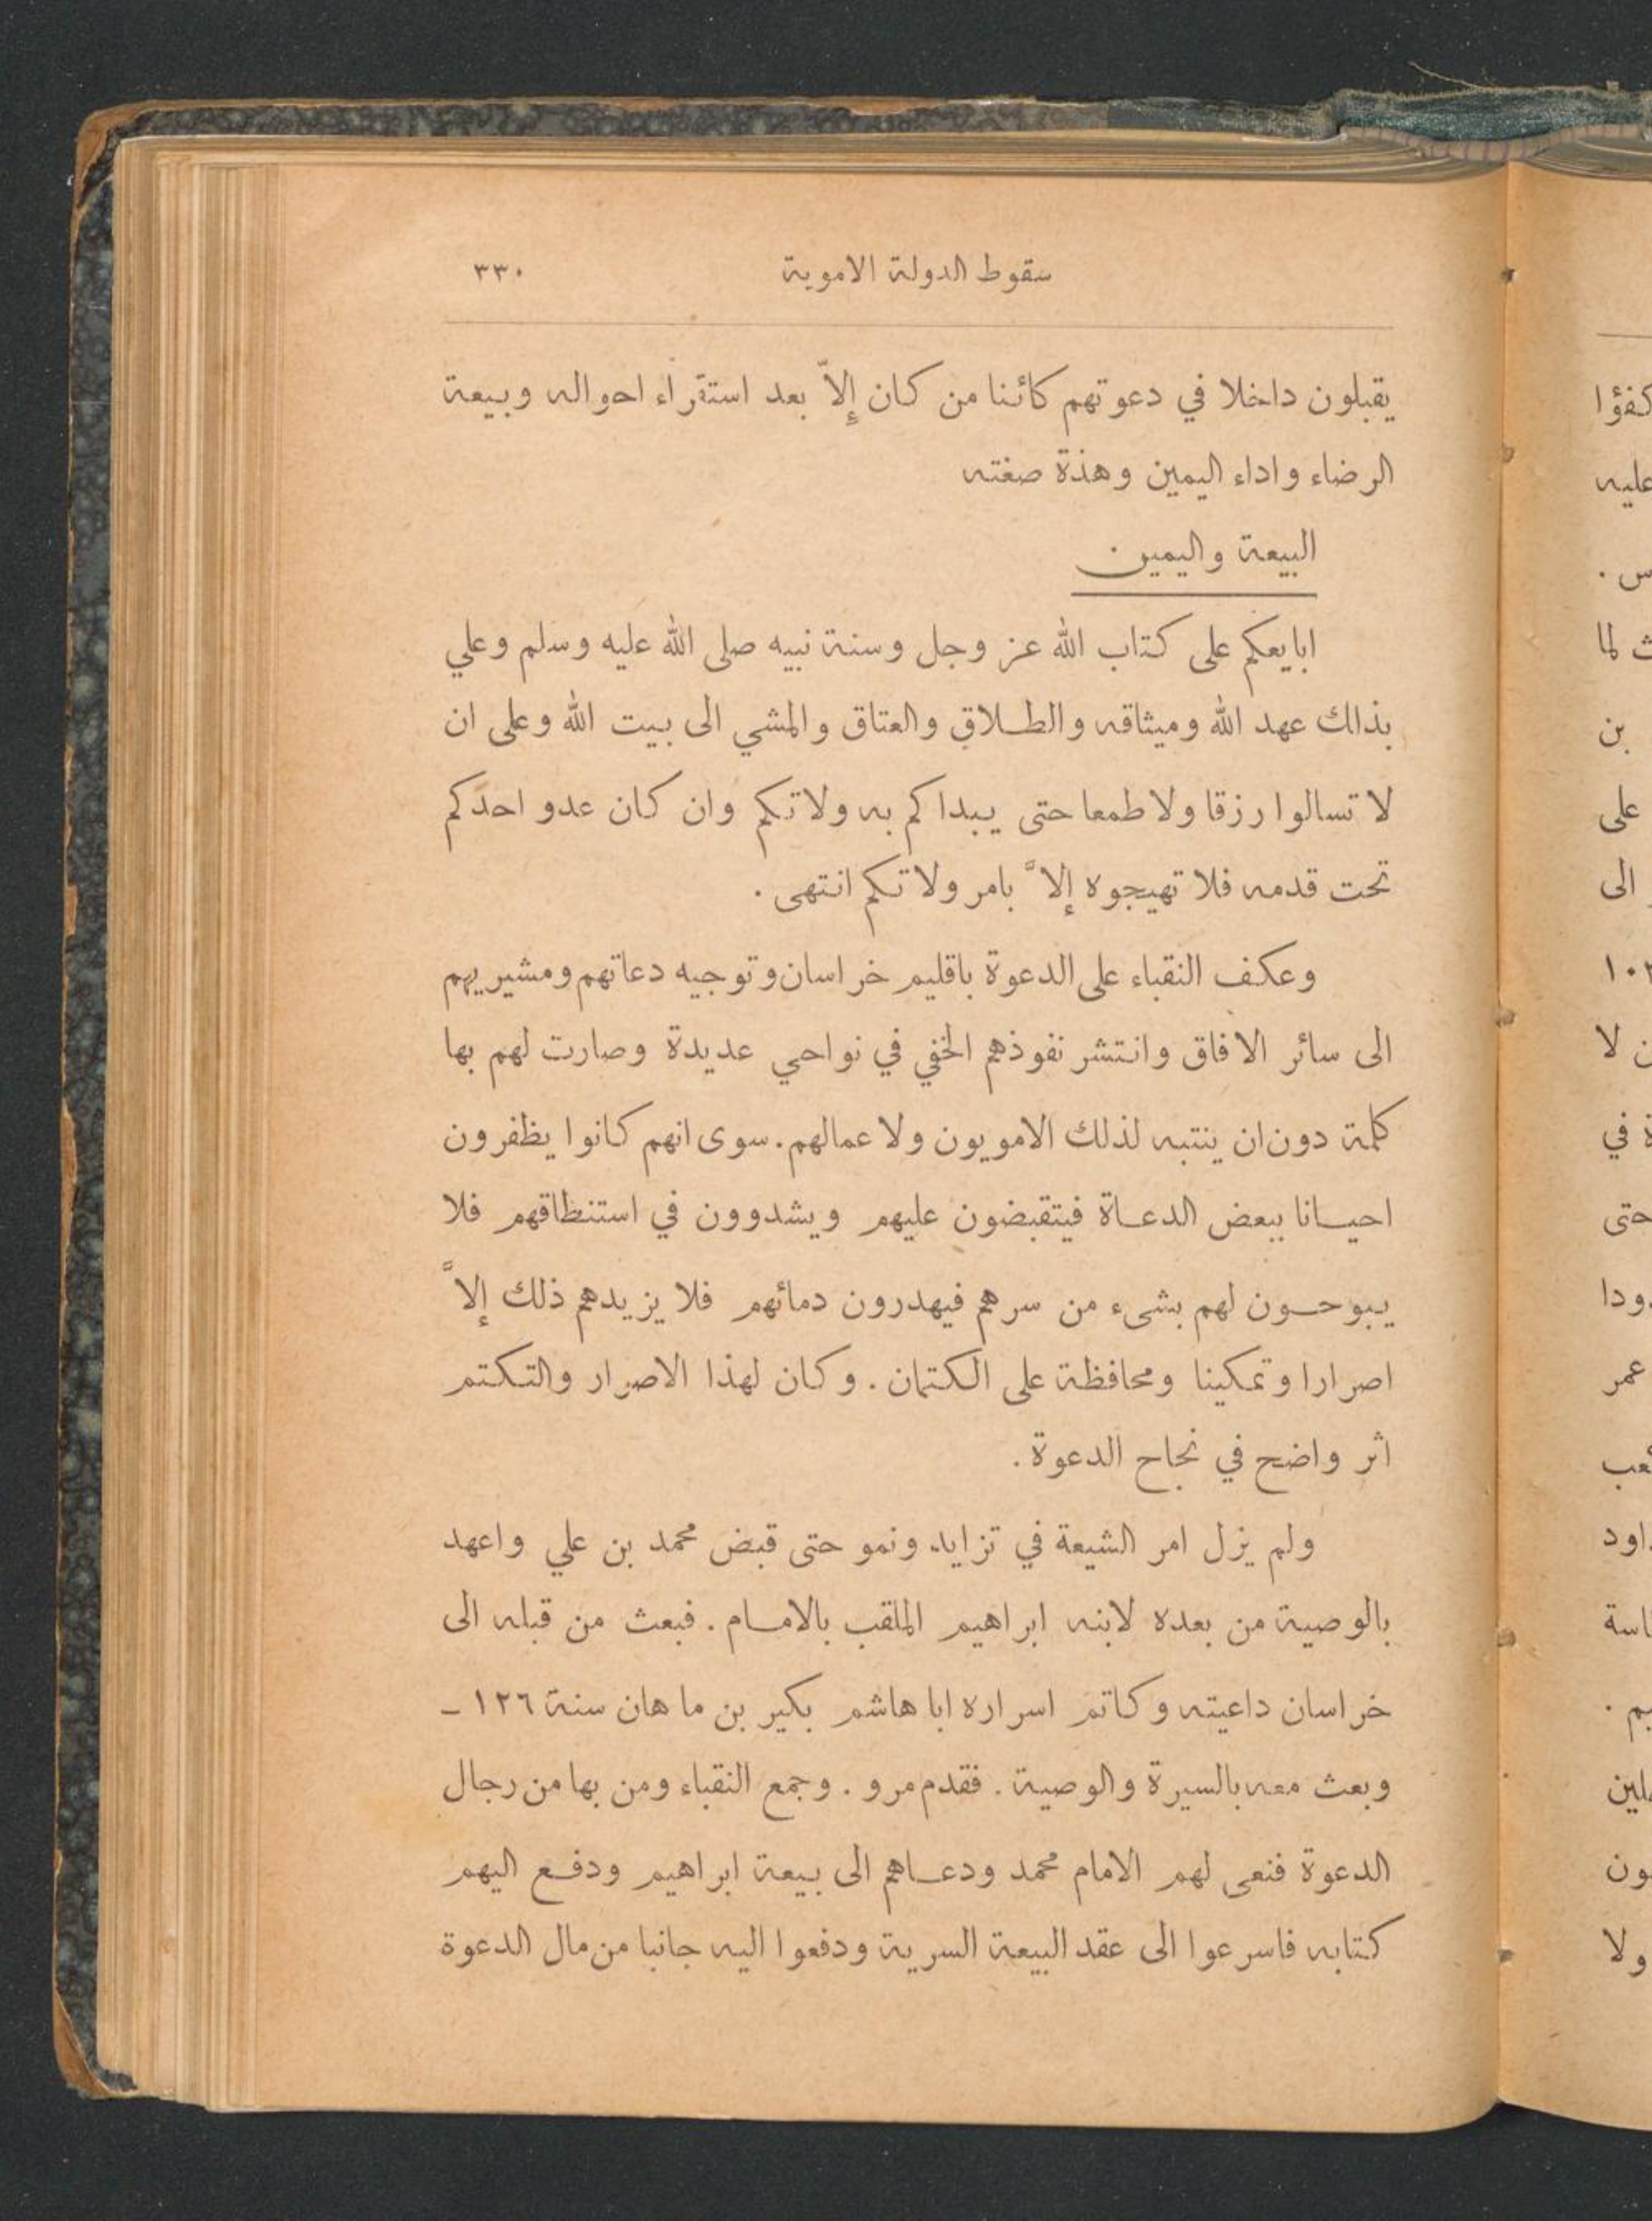 سقوط الدولة الاموية ٣٣٠
يقبلون داخلا في دعوتهم كائنا من كان إلاّ بعد استقراء احواله وبيعة
الرضاء واداء اليمين وهذة صغته
البيعة واليمين
ابايعكم على كتاب الله عز وجل وسنة نبيه صلى الله عليه وسلم وعلي
بذالك عهد الله وميثاقه والطلاق والعتاق والمشي الى بيت الله وعلى ان
لا تسالوا رزقا ولا طمعا حتى يبداكم به ولاتكم وان كان عدو احدكم
تحت قدمه فلا تهيجوه إلاّ بامر ولاتكم انتهى .
وعكف النقباء على الدعوة باقليم خراسان وتوجيه دعاتهم ومشيريهم
الى سائر الافاق وانتشر نفوذهم الخفي في نواحي عديدة وصارت لهم بها
كلمة دون ان ينتبه لذلك الامويون ولا عمالهم. سوى انهم كانوا يظفرون
احيانا ببعض الدعاة فيتقبضون عليهم ويشدوون في استنطاقهم فلا
يبوحون لهم بشىء من سرهم فيهدرون دمائهم فلا يزيدهم ذلك إلاّ
اصرارا وتمكينا ومحافظة على الكتمان . وكان لهذا الاصرار والتكتم
اثر واضح في نجاح الدعوة .
ولم يزل امر الشيعة في تزايد ونمو حتى قبض محمد بن علي واعهد
بالوصية من بعده لابنه ابراهيم الملقب بالامام . فبعث من قبله الى
خراسان داعيته وكاتم اسراره ابا هاشم بكير بن ما هان سنة ١٢٦ –
وبعث معه بالسيرة والوصية . فقدم مرو . وجمع النقباء ومن بها من رجال
الدعوة فنعى لهم الامام محمد ودعاهم الى بيعة ابراهيم ودفع اليهم
كتابه فاسرعوا الى عقد البيعة السرية ودفعوا اليه جانبا من مال الدعوة